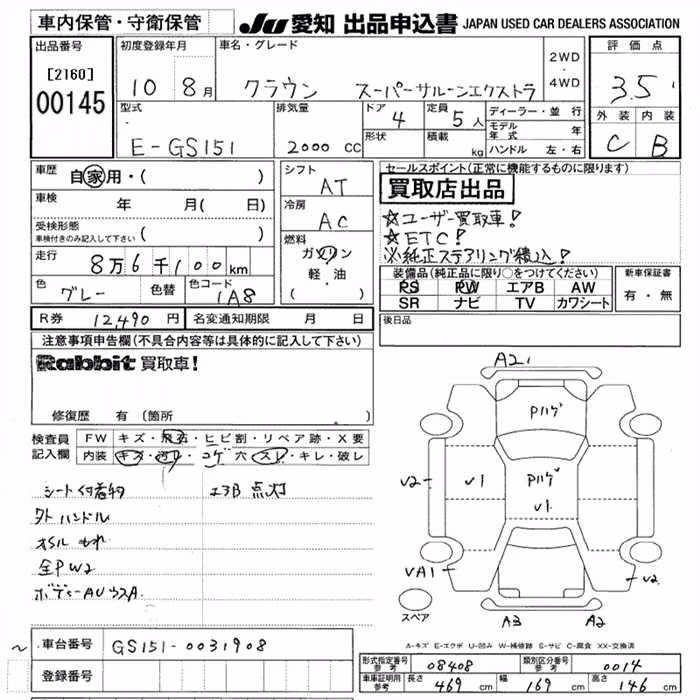 車内保管・守衛保管
JU 愛知 出品申込書 JAPAN USED CAR DEALERS ASSOCIATION
出品番号
[2160]
00145
初度登録年月
10 8月
車名・グレード
クラウン スーパーサルーンエクストラ
2WD
・
4WD
評価点
3.5
外装 内装
C B
型式
E-GS151
排気量
2000 CC
ドア
4
形状
定員
5人
積載
kg
ディーラー・並行
モデル年式 年
ハンドル 左・右
車歴
自家用・( )
車検
年 月( 日)
受検形態
車検付きのみ記入して下さい ( )
走行
8万6千100km
色
グレー
色替
色コード
1A8
シフト
AT
冷房
AC
燃料
ガソリン
軽・油
( )
セールスポイント(正常に機能するものに限ります)
買取店出品
☆ユーザー買取車!
☆ETC!
※純正ステアリング積込!
装備品(純正品に限り○をつけてください)
PS PW エアB AW
SR ナビ TV カワシート
新車保証書
有・無
R券 12,490円 名変通知期限 月 日
後日品
注意事項申告欄(不具合内容等は具体的に記入して下さい)
Rabbit 買取車!
修復歴 有(箇所 )
検査員
記入欄
FW キズ・飛石・ヒビ割・リペア跡・X要
内装 キズ・汚レ・コゲ穴・スレ・キレ・破レ
シート付着物 エアB点灯
外ハンドル
オイルもれ
全PW2
A21
Pハゲ
V2
V1
Pハゲ
V1
VA1
V2
スペア
A3
A2
A-キズ E-エクボ U-凹み W-補修跡 S-サビ C-腐食 XX-交換済
車台番号 GS151-0031908
登録番号
形式指定番号 参考 08408 類別区分番号 参考 0014
車庫証明用 参考 長さ 469cm 幅 169cm 高さ 146cm